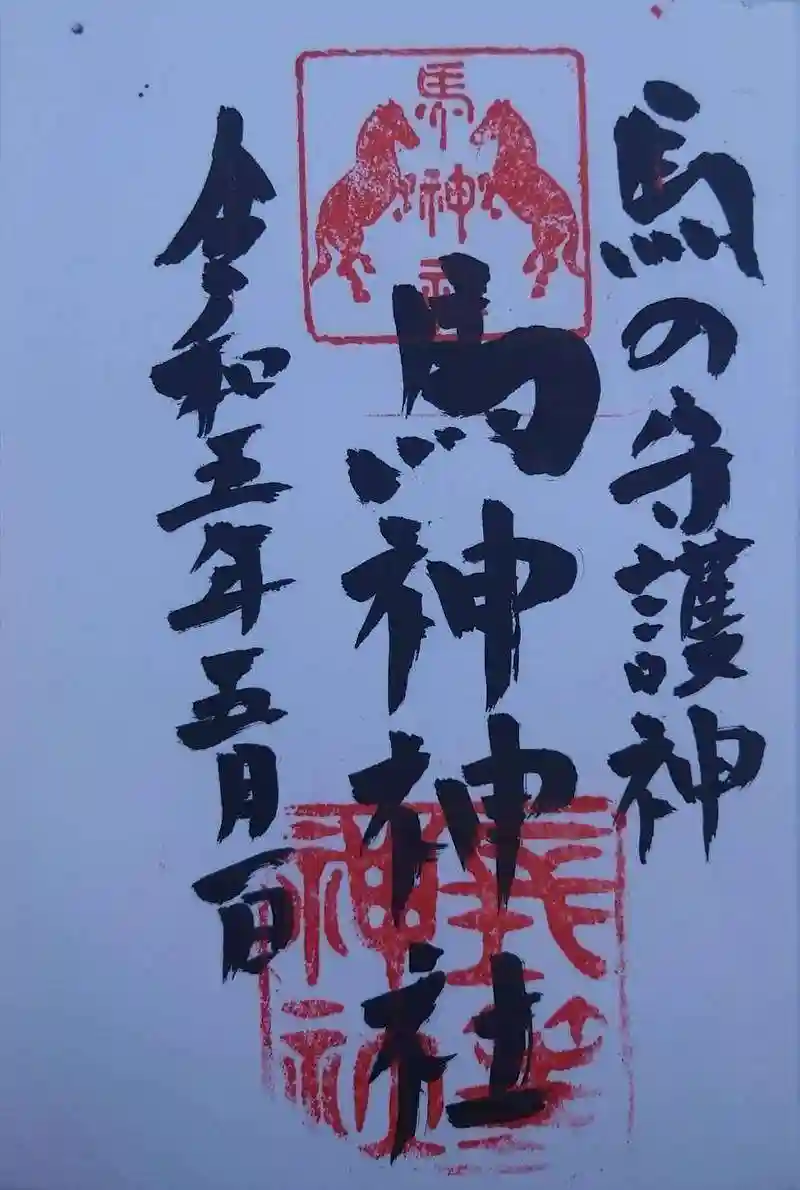 馬の守護神
馬神神社
令和五年五月一日
馬神社